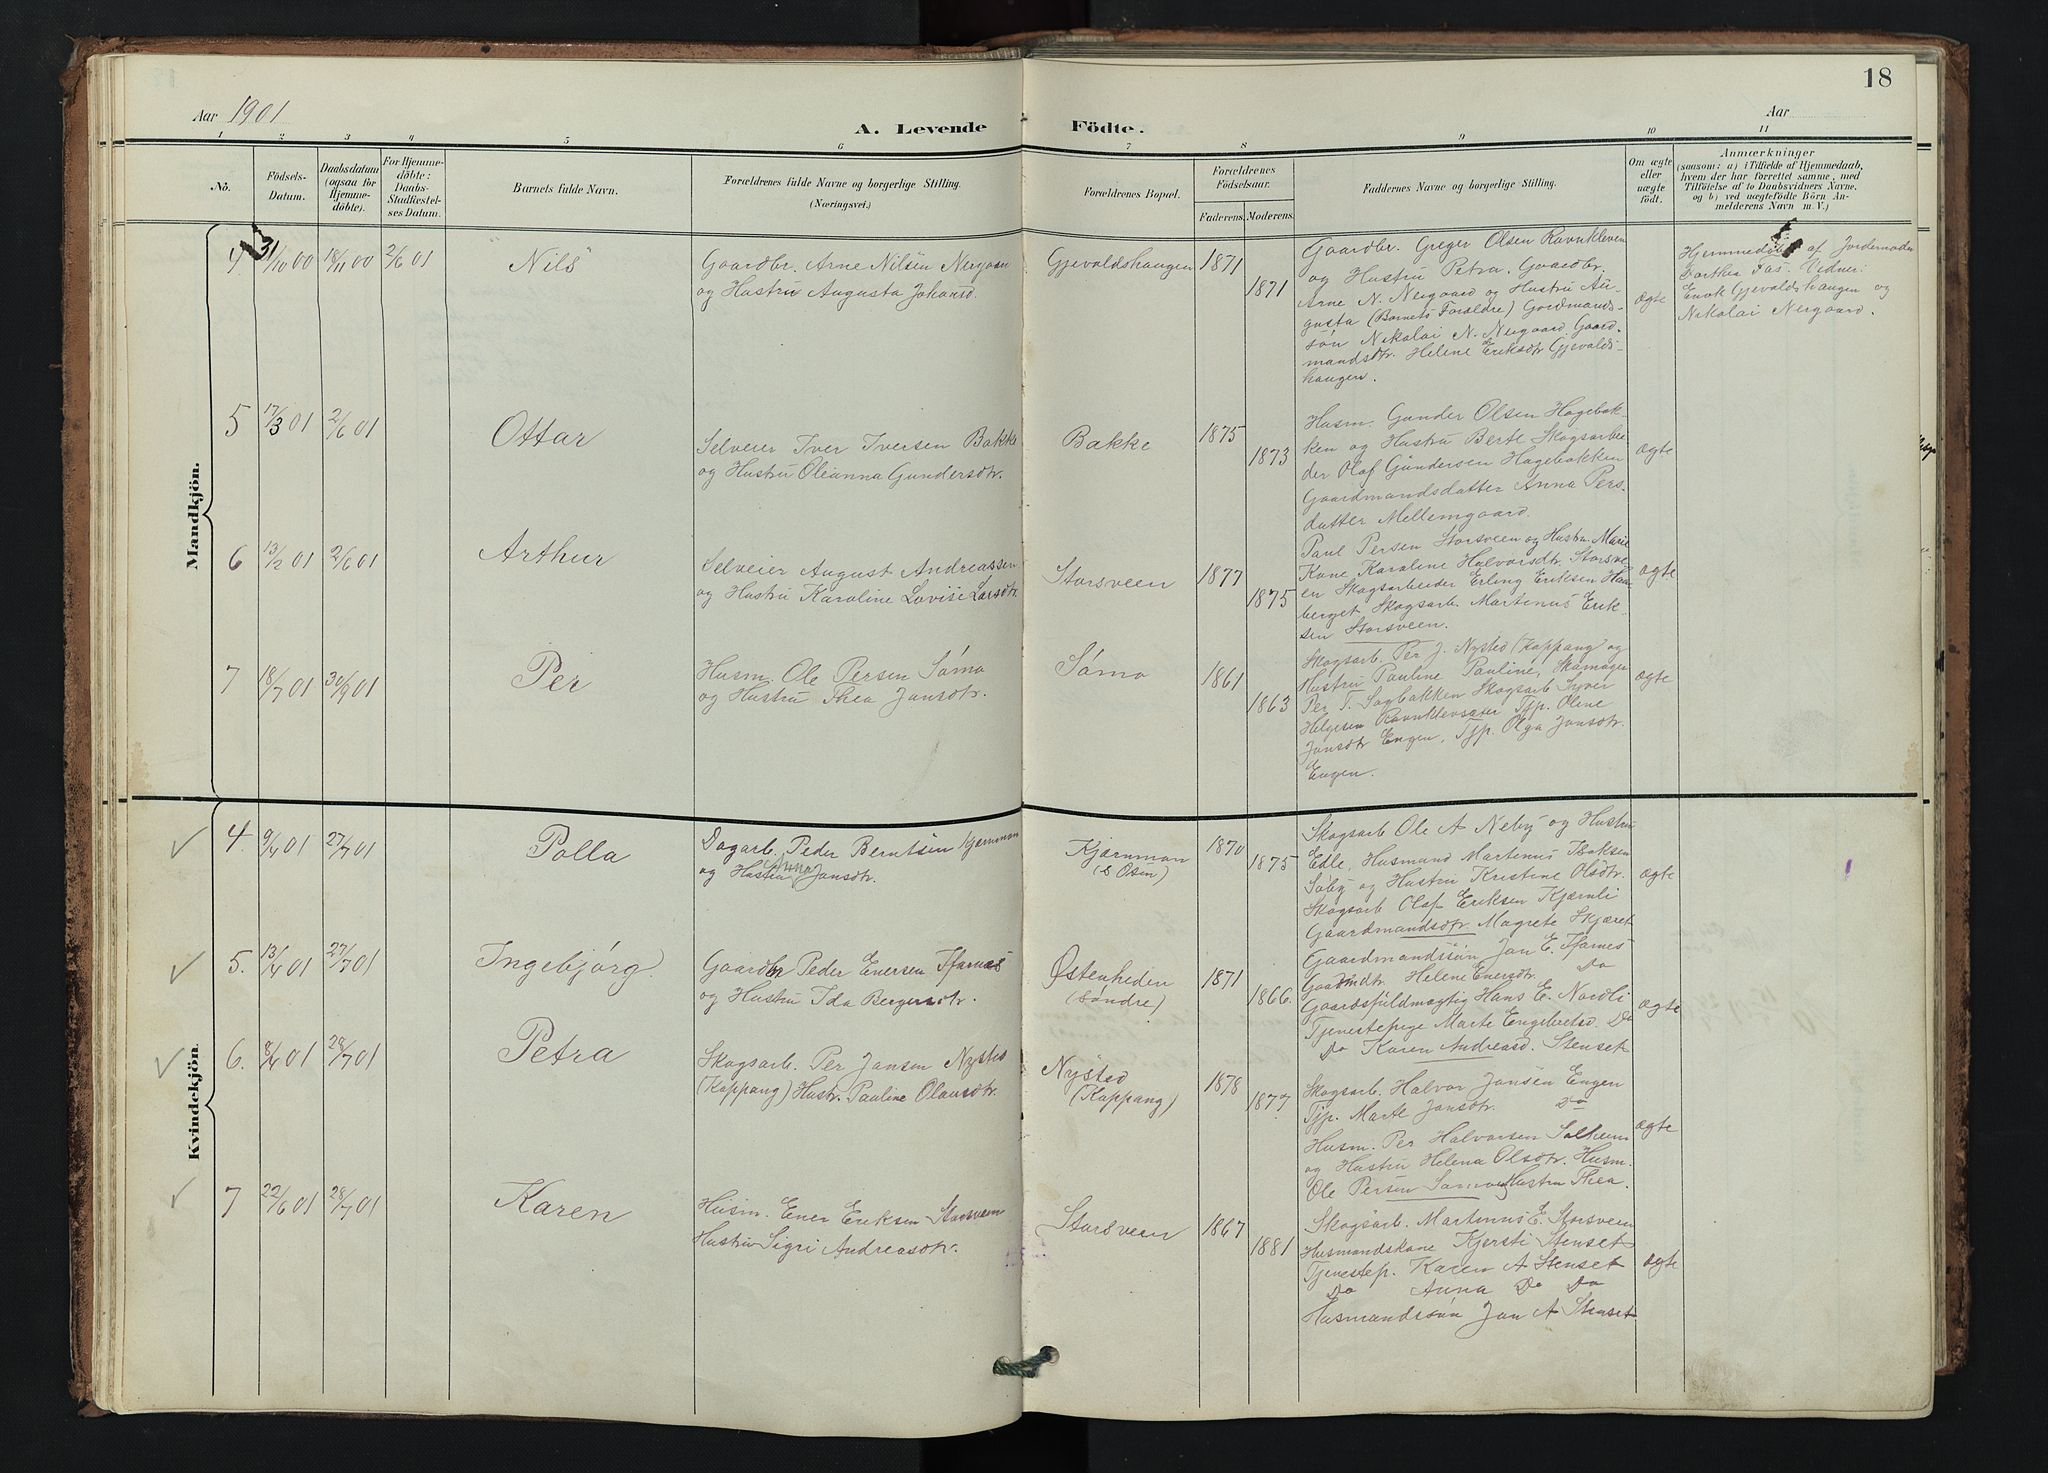 18
Aar 1901
Aar
A. Levende Födte.
1 2 3 4 5 6 7 8 9 10 11
No.
Födsels-
Datum.
Daabsdatum
(ogsaa for
Hjemme-
döbte).
For Hjemme-
döbte:
Daabs-
Stadfæstel-
ses Datum.
Barnets fulde Navn.
Forældrenes fulde Navne og borgerlige Stilling.
(Næringsvei.)
Forældrenes Bopæl.
Forældrenes
Födselsaar.
Faderens.
Moderens.
Faddernes Navne og borgerlige Stilling.
Om ægte
eller
uægte
födt.
Anmærkninger
(saasom: a) i Tilfælde af Hjemmedaab,
hvem der har forrettet samme, med
Tilföielse af to Daabsvidners Navne,
og b) ved uægtefödte Börn An-
melderens Navn m. V.)
Mandkjön.
4 31/10 00 18/11 00 2/6 01
Nils
Gaardbr. Arne Nilsen Nergaard
og Hustru Augusta Johansd.
Gjevaldshaugen
1871
1871
Gaardbr. Greger Olsen Ravnkleven
og Hustru Petra. Gaardbr.
Arne N. Nergaard og Hustru Au-
gusta (Barnets Forældre) Gardmands-
søn Nikolai N. Nergaard. Gaard-
mandsdtr. Helene Eriksdtr Gjevalds-
haugen.
ægte
Hjemmedøbt af Jordemoder
Dorthea Fas. Vidner:
Enok Gjevaldshaugen og
Nikolai Nergaard.
5 17/3 01 2/6 01
Ottar
Selveier Iver Iversen Bakke
og Hustru Oleanna Gundersdtr.
Bakke
1875
1873
Husm. Gunder Olsen Hagebak-
ken og Hustru Berte Skogsarbei-
der Olaf Gundersen Hagebakken
Gaardmandsdatter Anna Pers-
datter Mellemgaard.
ægte
6 13/2 01 2/6 01
Arthur
Selveier August Andreassen
og Hustru Karoline Lovise Larsdtr.
Storsveen
1877
1875
Paul Persen Storsveen og Hustru Marie
Kone Karoline Halvorsdtr. Storsve-
en Skogsarbeider Erling Eriksen Haa-
berget Skogsarb. Martinus Erik-
sen Storsveen.
ægte
7 18/7 01 30/9 01
Per
Husm. Ole Persen Sømo
og Hustru Thea Jansdtr.
Sømo
1861
1863
Skogsarb. Per J. Nysted (Koppang) og
Hustru Pauline Pauline, Skomager
Per T. Sagbakken Skogsarb Syver
Helgesen Ravnklevsæter Tjp. Oline
Jansdtr Engen, Tjp. Olga Jansdtr.
Engen.
ægte
Kvindekjön.
4. 9/4 01 27/7 01
Polla
Dagarb. Peder Berntsen Kjernmon
og Hustru Anna Jansdtr.
Kjærnmon
(S Osen)
1870
1875
Skogsarb Ole A Neby og Hustru
Edle, Husmand Martinus Isaksen
Søby og Hustru Kristine Olsdtr.
Skogsarb Olaf Eriksen Kjærnli
Gaardmandsdtr. Magrete Skjæret
ægte
5. 13/4 01 27/7 01
Ingebjørg
Gaardbr Peder Enersen Ifarnes
og Hustru Ida Bergersdtr.
Østenheden
(Søndre)
1871
1866.
Gaardmandssøn Jan E. Ifarnes
Gaardmdtr. Helene Enersdtr. Do
Gaardsfuldmægtig Hans E. Nordli
Tjenestepige Marte Engebretsd. Do
Do Karen Andreasd. Stenset
ægte
6. 8/4 01 28/7 01
Petra
Skogsarb. Per Jansen Nysted
(Koppang) Hustr. Pauline Olausdtr.
Nysted
(Koppang)
1878
1877
Skogsarb. Halvor Jansen Engen
Tjp. Marte Jansdtr. Do
Husm. Per Halvorsen Solheim
og Hustru Helena Olsdtr. Husm.
Ole Persen Sømo, Hustru Thea.
ægte
7 22/6 01 28/7 01
Karen
Husm. Ener Eriksen Storsveen
Hustru Sigri Andreasdtr.
Storsveen
1867
1881
Skogsarb. Martinus E. Storsveen
Husmandskone Kjersti Stenset
Tjenestep. Karen A Stenset
Do Anna Do Do
Husmandssøn Jan A Stenset
ægte